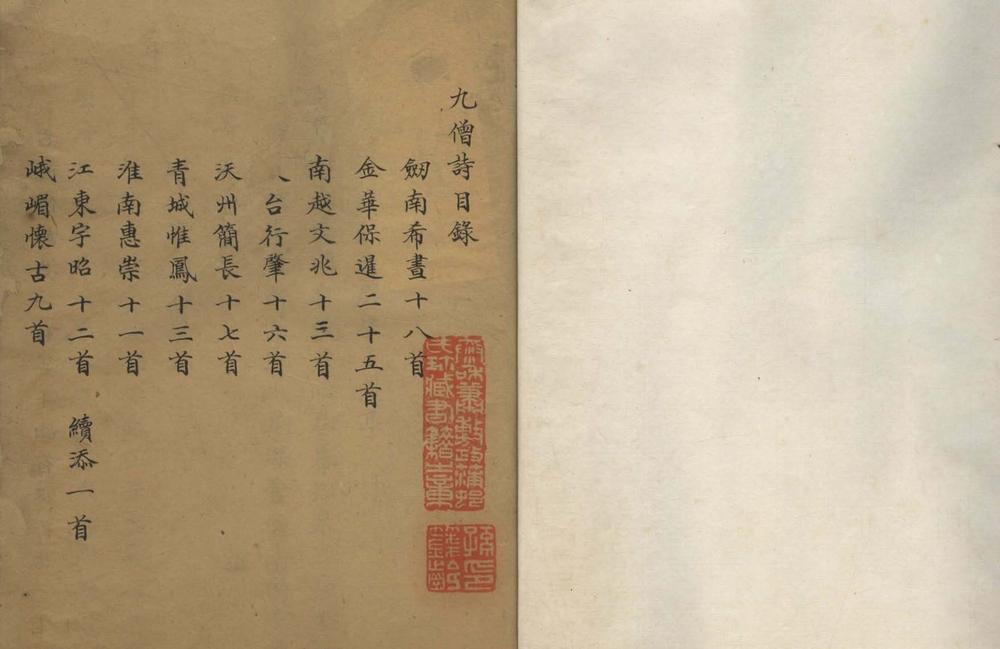 九僧詩目錄
劒南希晝十八首
金華保暹二十五首
南越文兆十三首
台行肇十六首
沃州簡長十七首
青城惟鳳十三首
淮南惠崇十一首
江東宇昭十二首 續添一首
峨嵋懷古九首
蕭敷政蒲邨
氏珍藏書籍之章